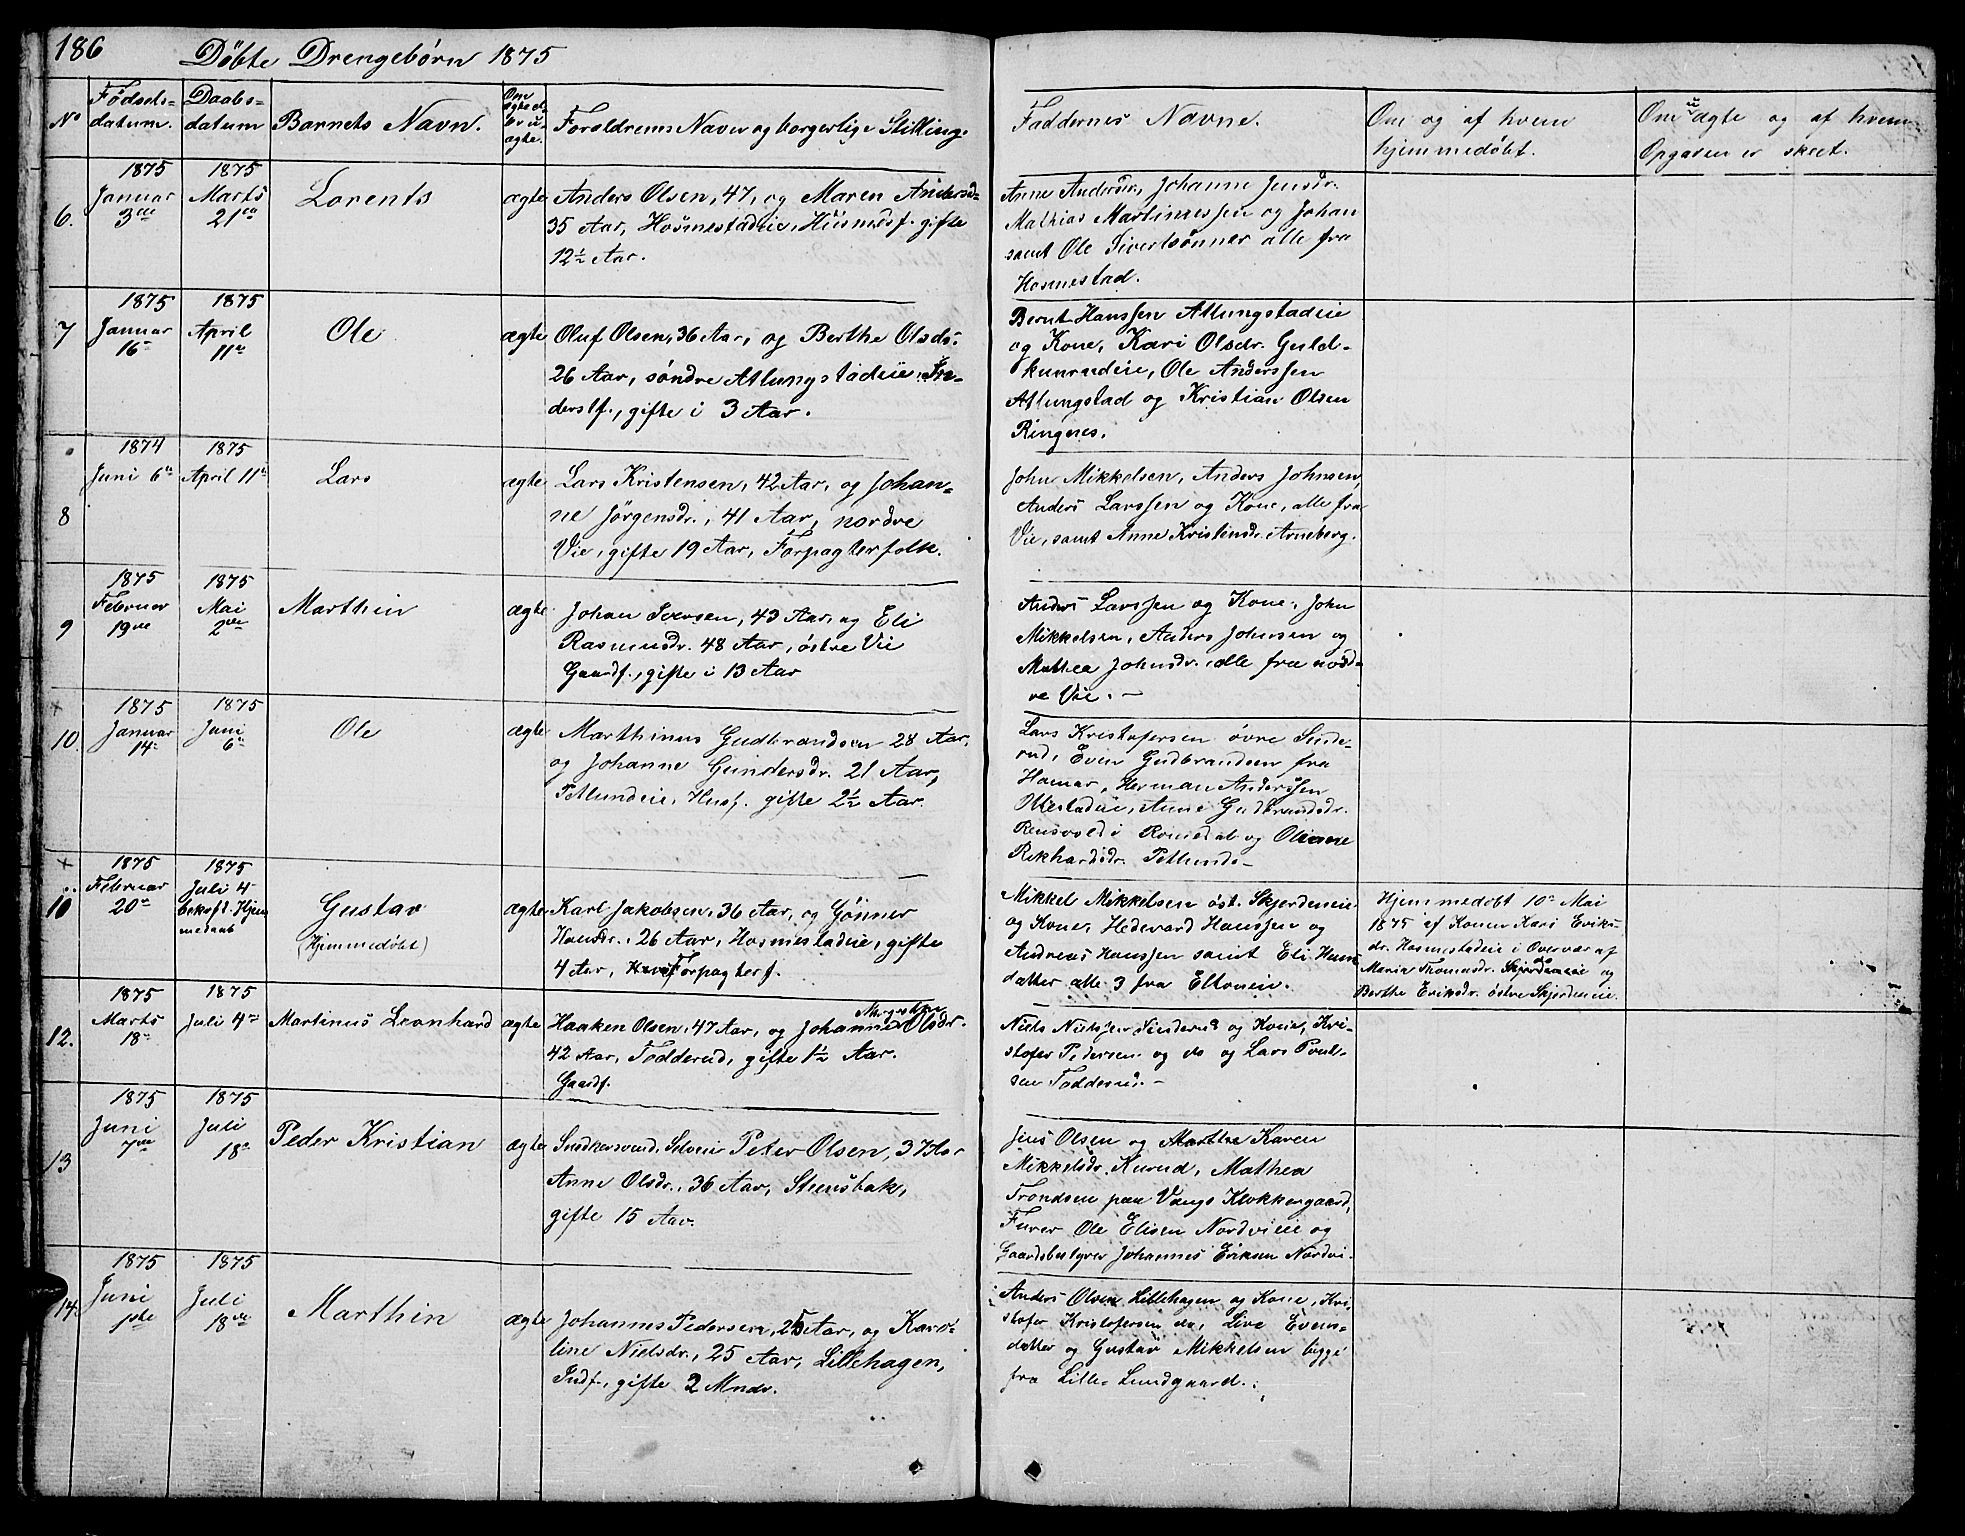 186
Döbte Drengebørn 1875
No
Fødsels-
datum.
Daabs-
datum
Barnets Navn.
Om
ægte el-
ler u-
ægte.
Forældrenes Navn og borgerlige Stilling.
Faddernes Navne.
Om og af hvem
hjemmedøbt.
Om uægte og af hvem
Opgaven er skeet.
6.
1875
Januar
3die
1875
Marts
21de
Lorents
ægte
Anders Olsen, 47, og Maren Andersd-
35 Aar, Hosmestadeie, Huusmdsf. gifte
12½ Aar.
Anne Andersdr. Johanne Jensdr.
Mathias Martinussen og Johan
samt Ole Sivertsønner alle fra
Hosmestad.
7
1875
Januar
16-
1875
April
11te
Ole
ægte
Oluf Olsen, 36 Aar, og Berthe Olsdr.
26 Aar, söndre Atlungstadeie, In-
derstf., gifte i 3 Aar.
Bernt Hanssen Atlungstadeie
og Kone, Kari Olsdr. Guld-
kunrudeie, Ole Anderssen
Atlungstad og Kristian Olsen
Ringnes.
8
1874
Juni 6te
1875
April 11te
Lars
ægte
Lars Kristensen, 42 Aar, og Johan-
ne Jörgensdr., 41 Aar, nordre
Vie, gifte 19 Aar, Forpagterfolk.
John Mikkelsen, Anders Johnsen,
Anders Larssen og Kone, alle fra
Vie, samt Anne Kristensdr. Arneberg.
9
1875
Februar
19de
1875
Mai
2den
Marthin
ægte
Johan Iversen, 43 Aar, og Eli
Rasmusdr. 48 Aar, östre Vie
Gaardf., gifte i 13 Aar
Anders Larssen og Kone, John
Mikkelsen, Anders Johnsen og
Mathea Johnsdr. alle fra nord-
re Vie. -
10
1875
Januar
14-
1875
Juni
6te
Ole
ægte
Marthinus Gudbrandsen 28 Aar,
og Johanne Gundersdr. 21 Aar,
Petlundeie, Husf. gifte 2½ Aar.
Lars Kristofersen övre Inde-
rud, Even Gudbrandsen fra
Hamar, Herman Anderssen
Anne Gudbrandsdr.
Rensvold i Romedal og Oliane
Rikhardsdr. Petlunds-
10
1875
Februar
20de
1875
Juli 4-
bekræft. Hjem
medaab
Gustav
(Hjemmedöbt)
ægte
Karl Jakobsen, 36 Aar, og Gönner
Hansdr., 26 Aar, Hosmestadeie, gifte
4 Aar, Forpagterf.
Mikkel Mikkelsen öst. Skjerdeneie
og Kone, Hedevard Hanssen og
Andreas Hanssen samt Eli Hans
datter alle 3 fra Eltoneie.
Hjemmedöbt 10de Mai
1875 af Konen Kari Eriks-
dr. Hosmestadeie i Overvær af
Maria Thomasdr. Skjerdeneie og
Berthe Eriksdr. östre Skjerdeneie.
12.
1875
Marts
18-
1875
Juli 4de
Martinus Leonhard
ægte
Haaken Olsen, 47 Aar, og Johanne Margrethe Olsdr.
42 Aar, Todderud, gifte 1½ Aar.
Gaardf.
Niels Nielssen Inderud og Kone, Kri-
stofer Pedersen og do og Lars Poul-
sen Todderud. -
13
1875
Juni
7de
1875
Juli
18de
Peder Kristian
ægte
Peter Olsen, 37 Aar
Anne Olsdr., 36 Aar, Steensbak,
gifte 15 Aar.
Jens Olsen og Marthe Karen
Mikkelsdr. Kurud, Mathea
Trondsen paa Vangs Klokkergaard,
Furer Ole Elisen Nordvieie og
Gaardsbestyrer Johannes Eriksen Nordvi-
14.
1875
Juni
1ste
1875
Juli
18de
Marthin
ægte
Johannes Pedersen, 25 Aar, og Karo-
line Nielsdr., 25 Aar, Lillehagen,
Indf., gifte 2 Mndr.
Anders Olsen Lillehagen og Kone, Kri
stofer Kristofersen do, Live Evens-
datter og Gustav Mikkelsen begge
fra Lille Lundgaard.